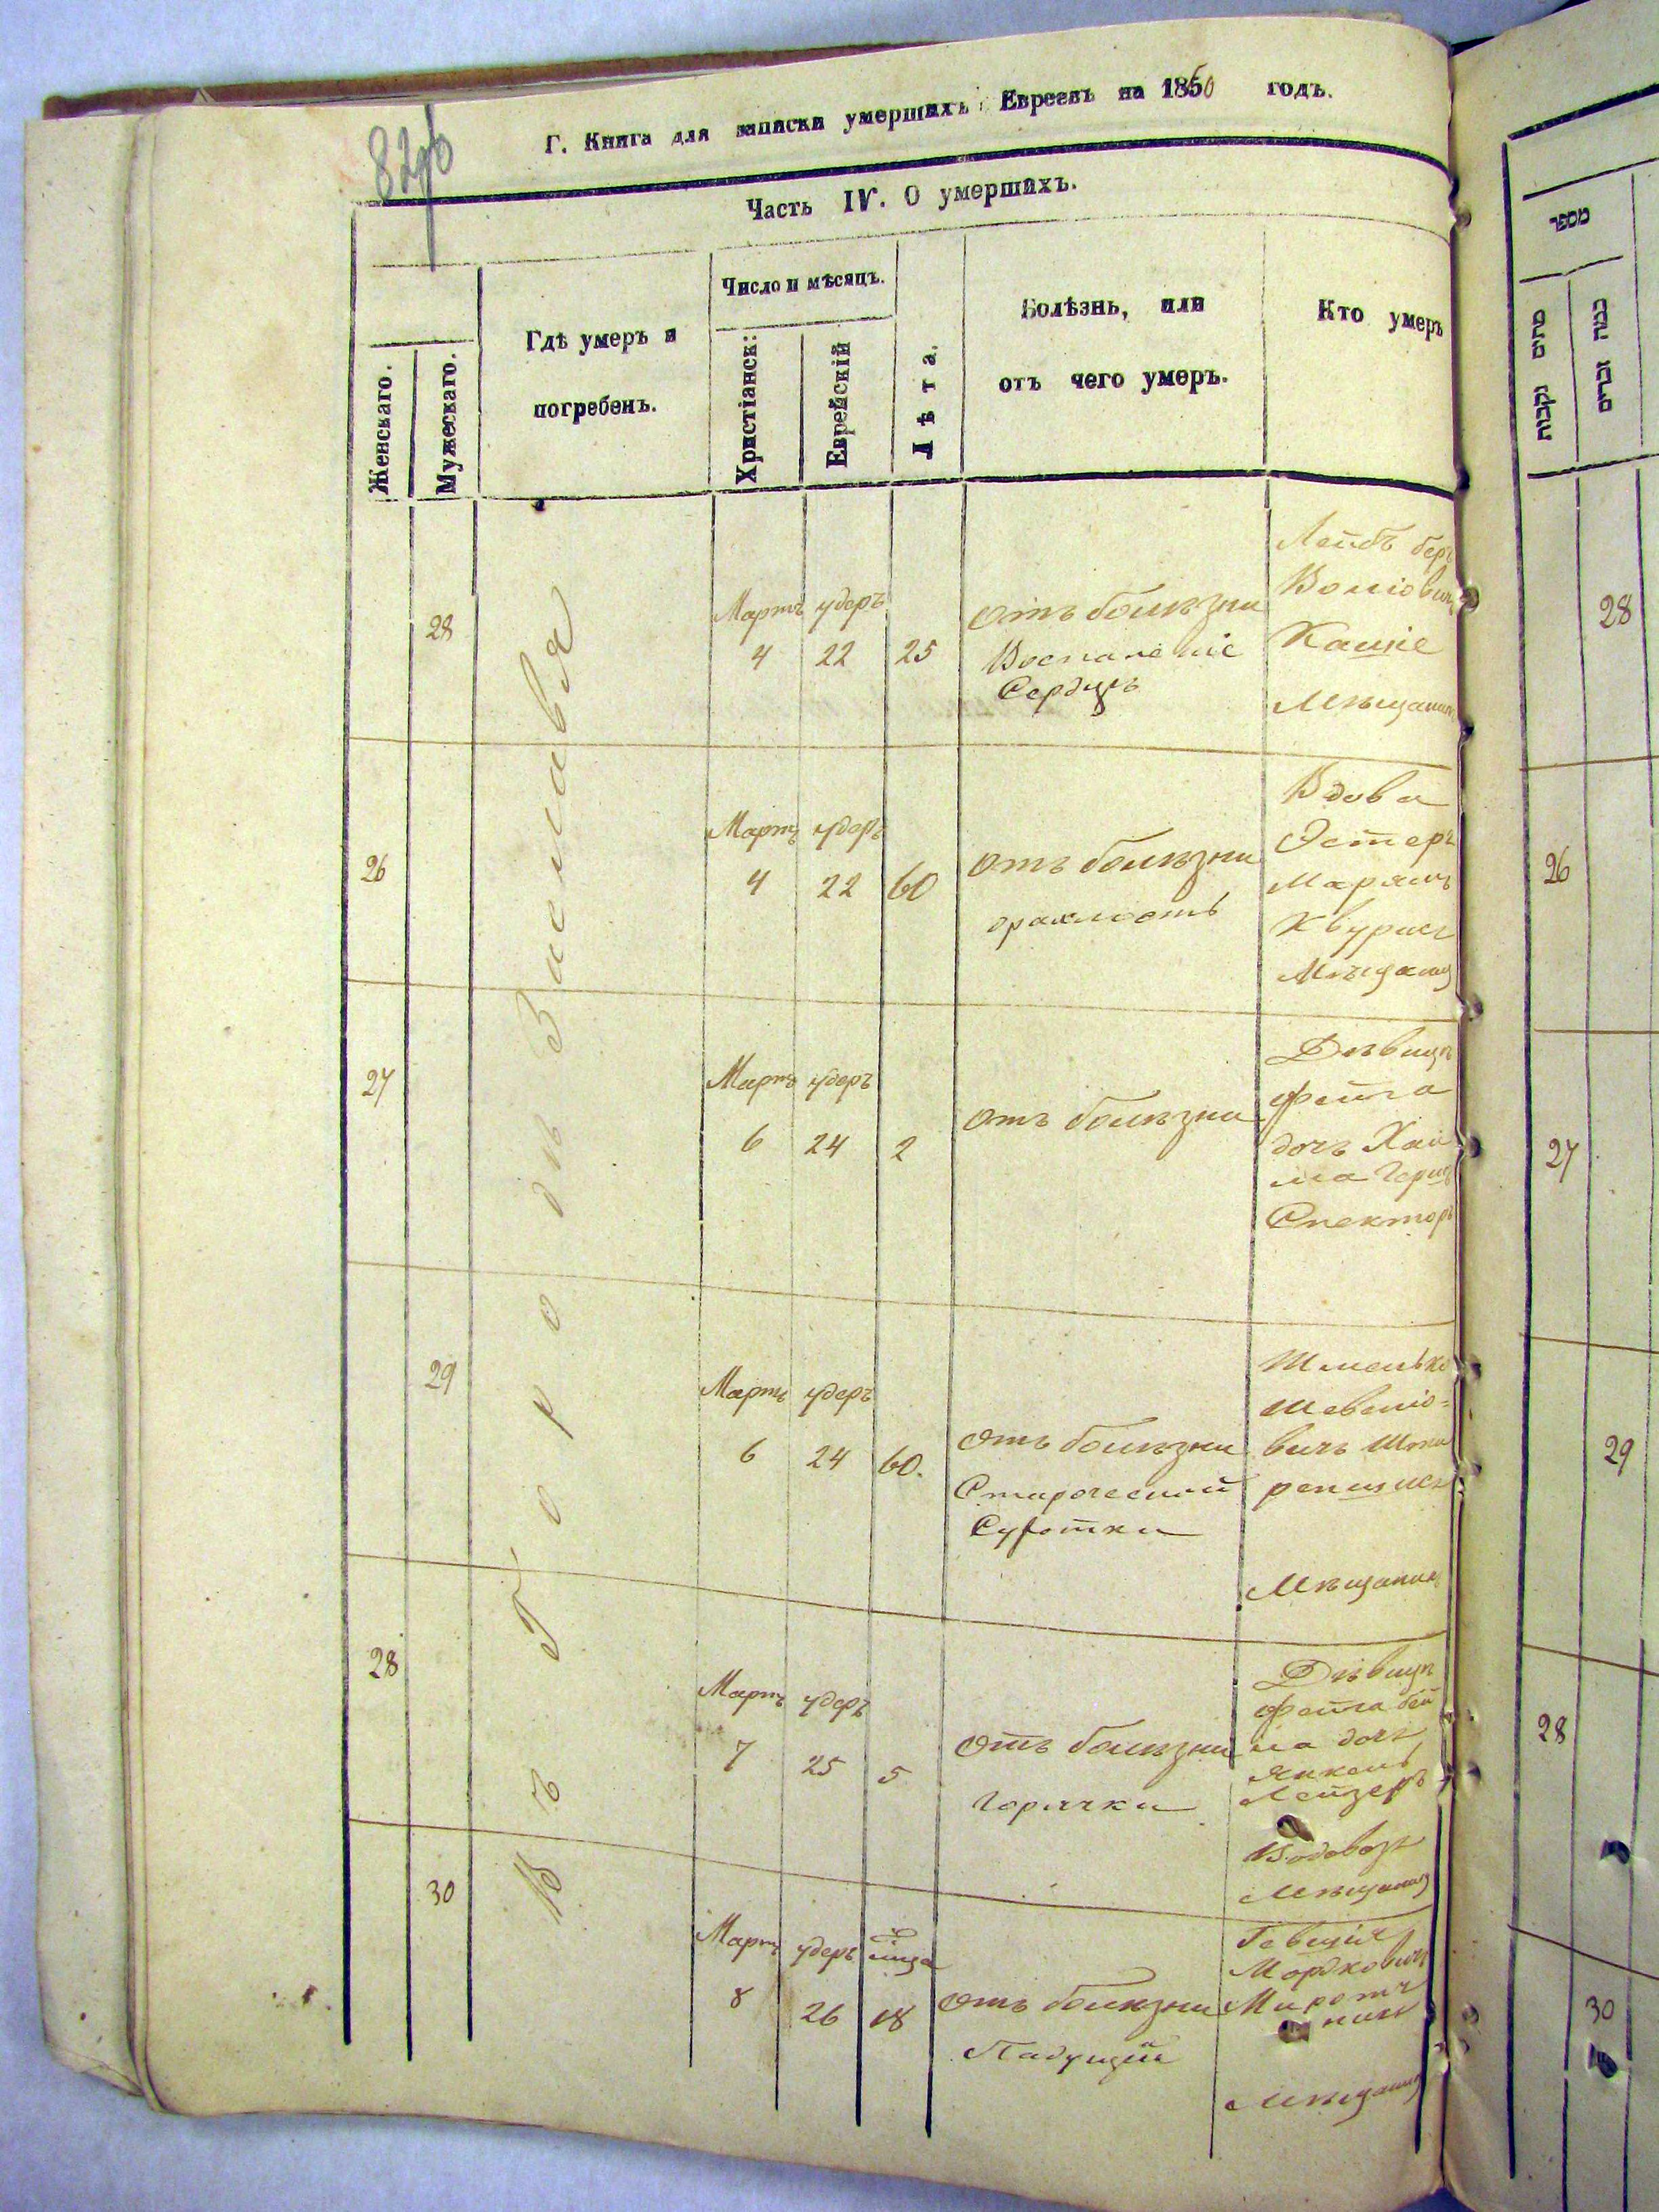 82об
Г. Книга для записки умершихъ Евреевъ на 1860 годъ.
Часть IV. О умершихъ.
Женскаго.
Мужескаго.
Гдѣ умеръ и
погребенъ.
Число и мѣсяцъ.
Христіанск:
Еврейскій
Лѣта.
Болѣзнь, или
отъ чего умеръ.
Кто умеръ
Въ Городѣ Заславлѣ
28
Мартъ
4
удеръ
22
25
отъ болѣзни
Воспаленіе
Сердцъ
Лейбъ Бер
Воліовичъ
Кацніе
Мѣщанин
26
Мартъ
4
удеръ
22
60
отъ болѣзни
драхлость
Вдова
Эстеръ
Марямъ
Мѣщанка
27
Мартъ
6
удеръ
24
2
отъ болѣзни
Дѣвица
Фейга
дочъ Хаи
ма Герш
Спекторъ
29
Мартъ
6
удеръ
24
60.
отъ болѣзни
Старческой
Сухотки
Шмелько
вичъ
Мѣщанинъ
28
Мартъ
7
удеръ
25
5
отъ болѣзни
Горячки
Дѣвица
Фейга бей
ла дочъ
Янкель
Лейзеръ
Водовозъ
Мѣщанинъ
30
Мартъ
8
удеръ
26
мѣца
18
отъ болѣзни
Падущій
Мордковичъ
Миротч
никъ
Мѣщанинъ
מספר
מתים נקבות
כמה זכרים
28
26
27
29
28
30